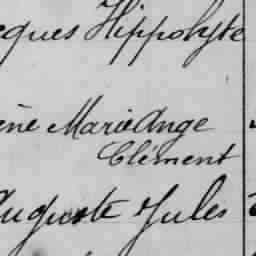 cques Hippolyte
ène Marie Ange
Clément
Auguste Jules